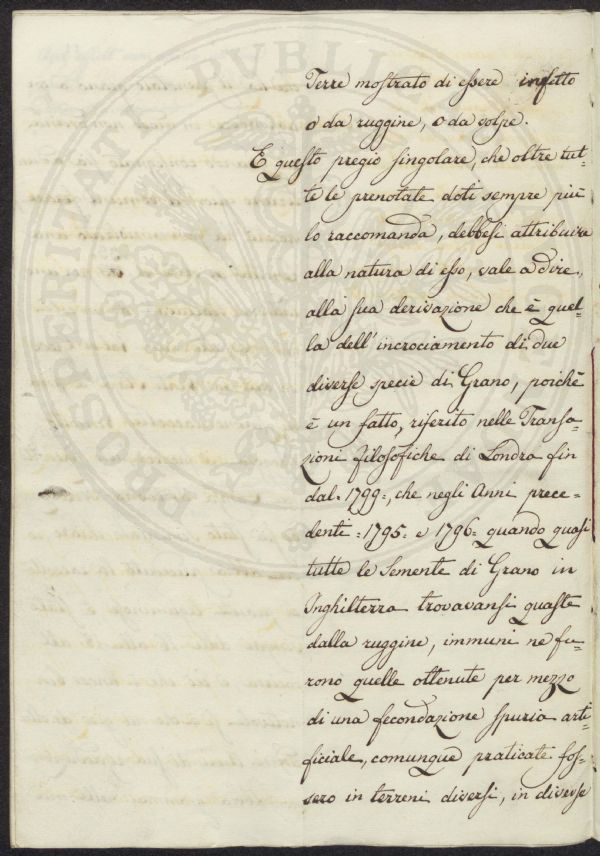 PROSPERITATI PVBLICAE
Terre mostrato di essere infetto
o da ruggine, o da volpe.
E questo pregio singolare, che oltre tut-
te le prenotate doti sempre più
lo raccomanda, debbesi attribuire
alla natura di esso, vale a dire,
alla sua derivazione che è quel-
la dell'incrociamento di due
diverse specie di Grano, poichè
è un fatto, riferito nelle Transa-
zioni filosofiche di Londra fin
dal =1799=, che negli Anni prece-
denti =1795= e 1796= quando quasi
tutte le Semente di Grano in
Inghilterra trovavansi guaste
dalla ruggine, immuni ne fu-
rono quelle ottenute per mezzo
di una fecondazione spuria arti-
ficiale, comunque praticate fos-
sero in terreni diversi, in diverse